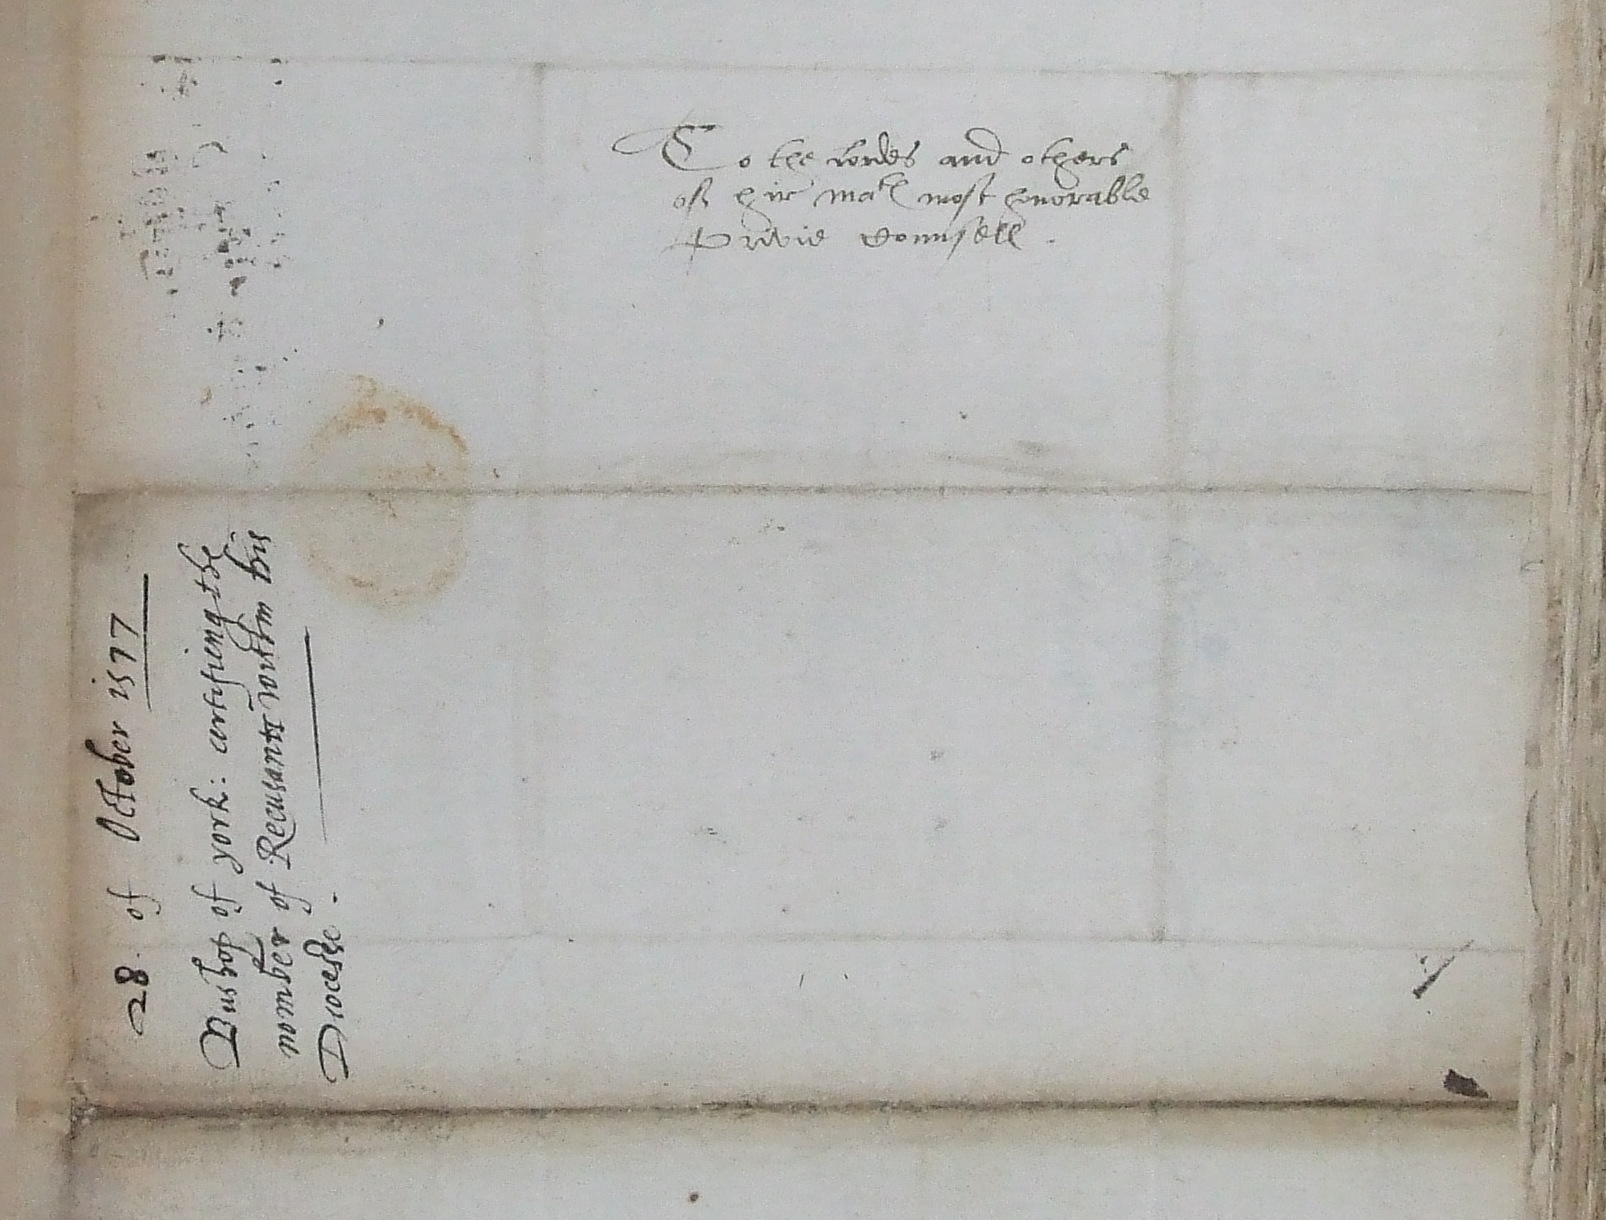 To the Lordes and others
of hir ma^tis most honorable
Privie Counsell .
28. of October 1577
Bushop of york: certifieng the
nomber of Recusantes within his
Diocesse .